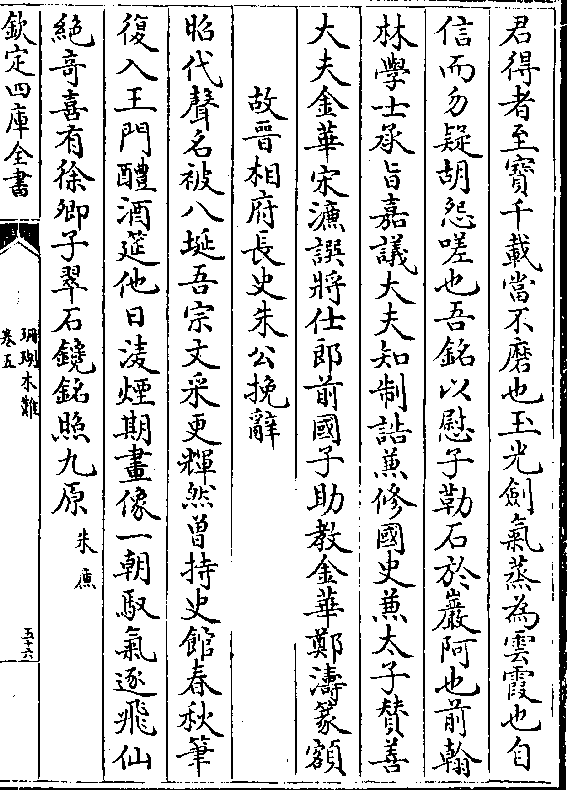 君得者至寶千載當不磨也玉光劍氣蒸為雲霞也自
信而勿疑胡怨嗟也吾銘以慰子勒石於巖阿也前翰
林學士承旨嘉議大夫知制誥兼修國史兼太子贊善
大夫金華宋濂譔將仕郎前國子助教金華鄭濤篆額
故晋相府長史朱公挽辭
昭代聲名被八埏吾宗文采更輝然曾持史館春秋筆
復入王門醴酒筵他日凌煙期畫像一朝馭氣逐飛仙
絶竒喜有徐卿子翠石鐫銘照九原
朱㢘
欽定四庫全書
珊瑚木難
卷五
五十六